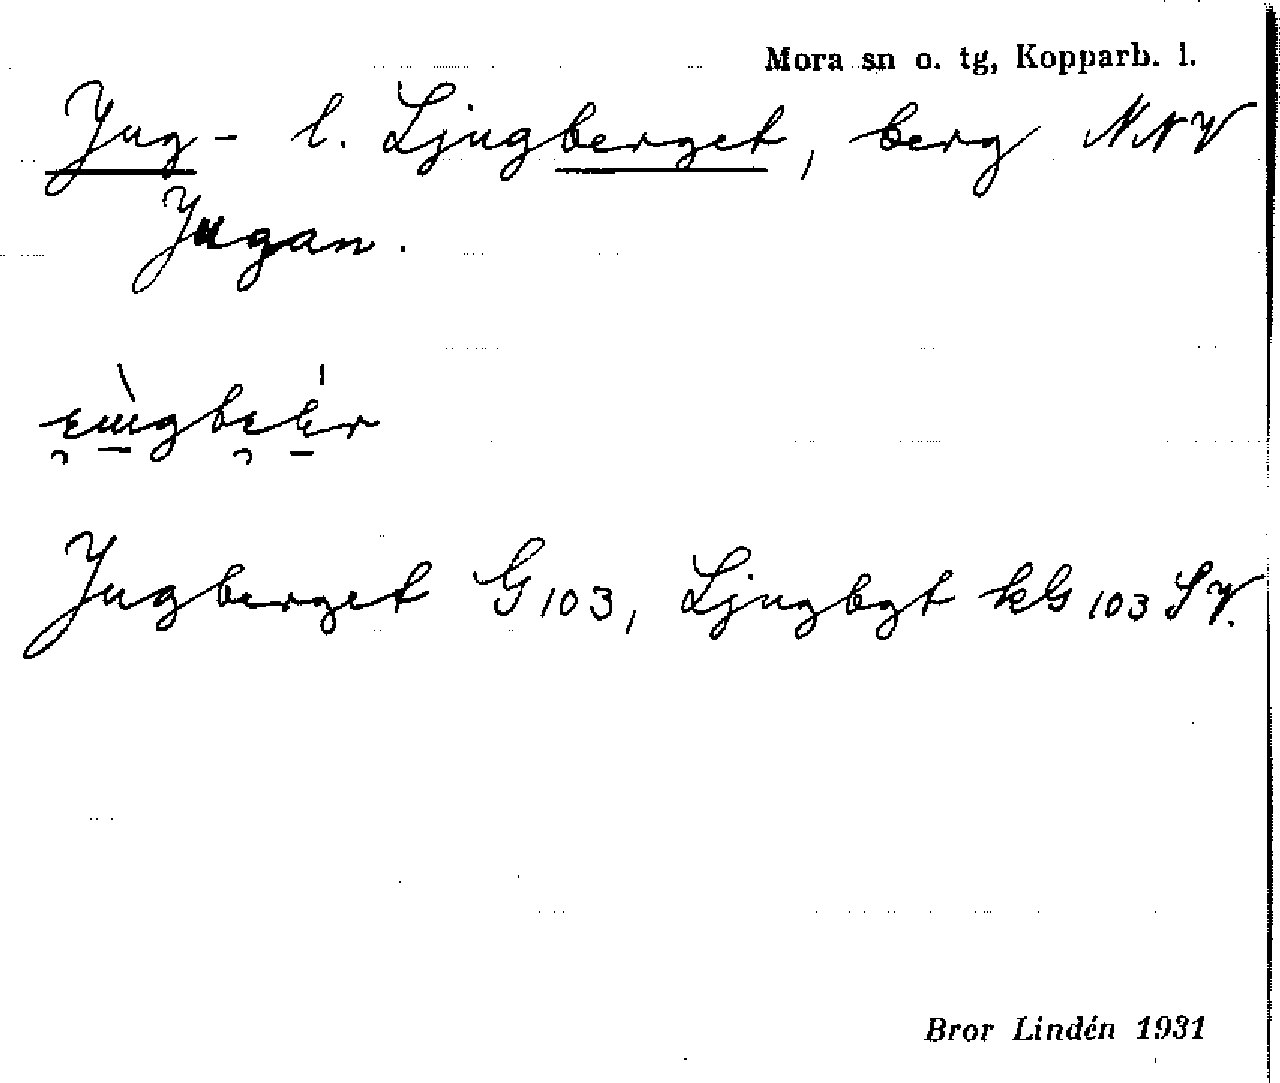 Mora sn o. tg, Kopparb. l.
Jug- l. Ljugberget, berg NNV
Jugan.
Jugberget G103, Ljugbgt kG103 SV.
Bror Lindén 1931